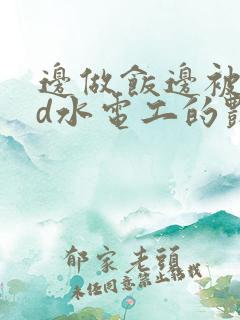 邊做飯邊被
d水電工的
郁家老頭
未任同意禁止轉載